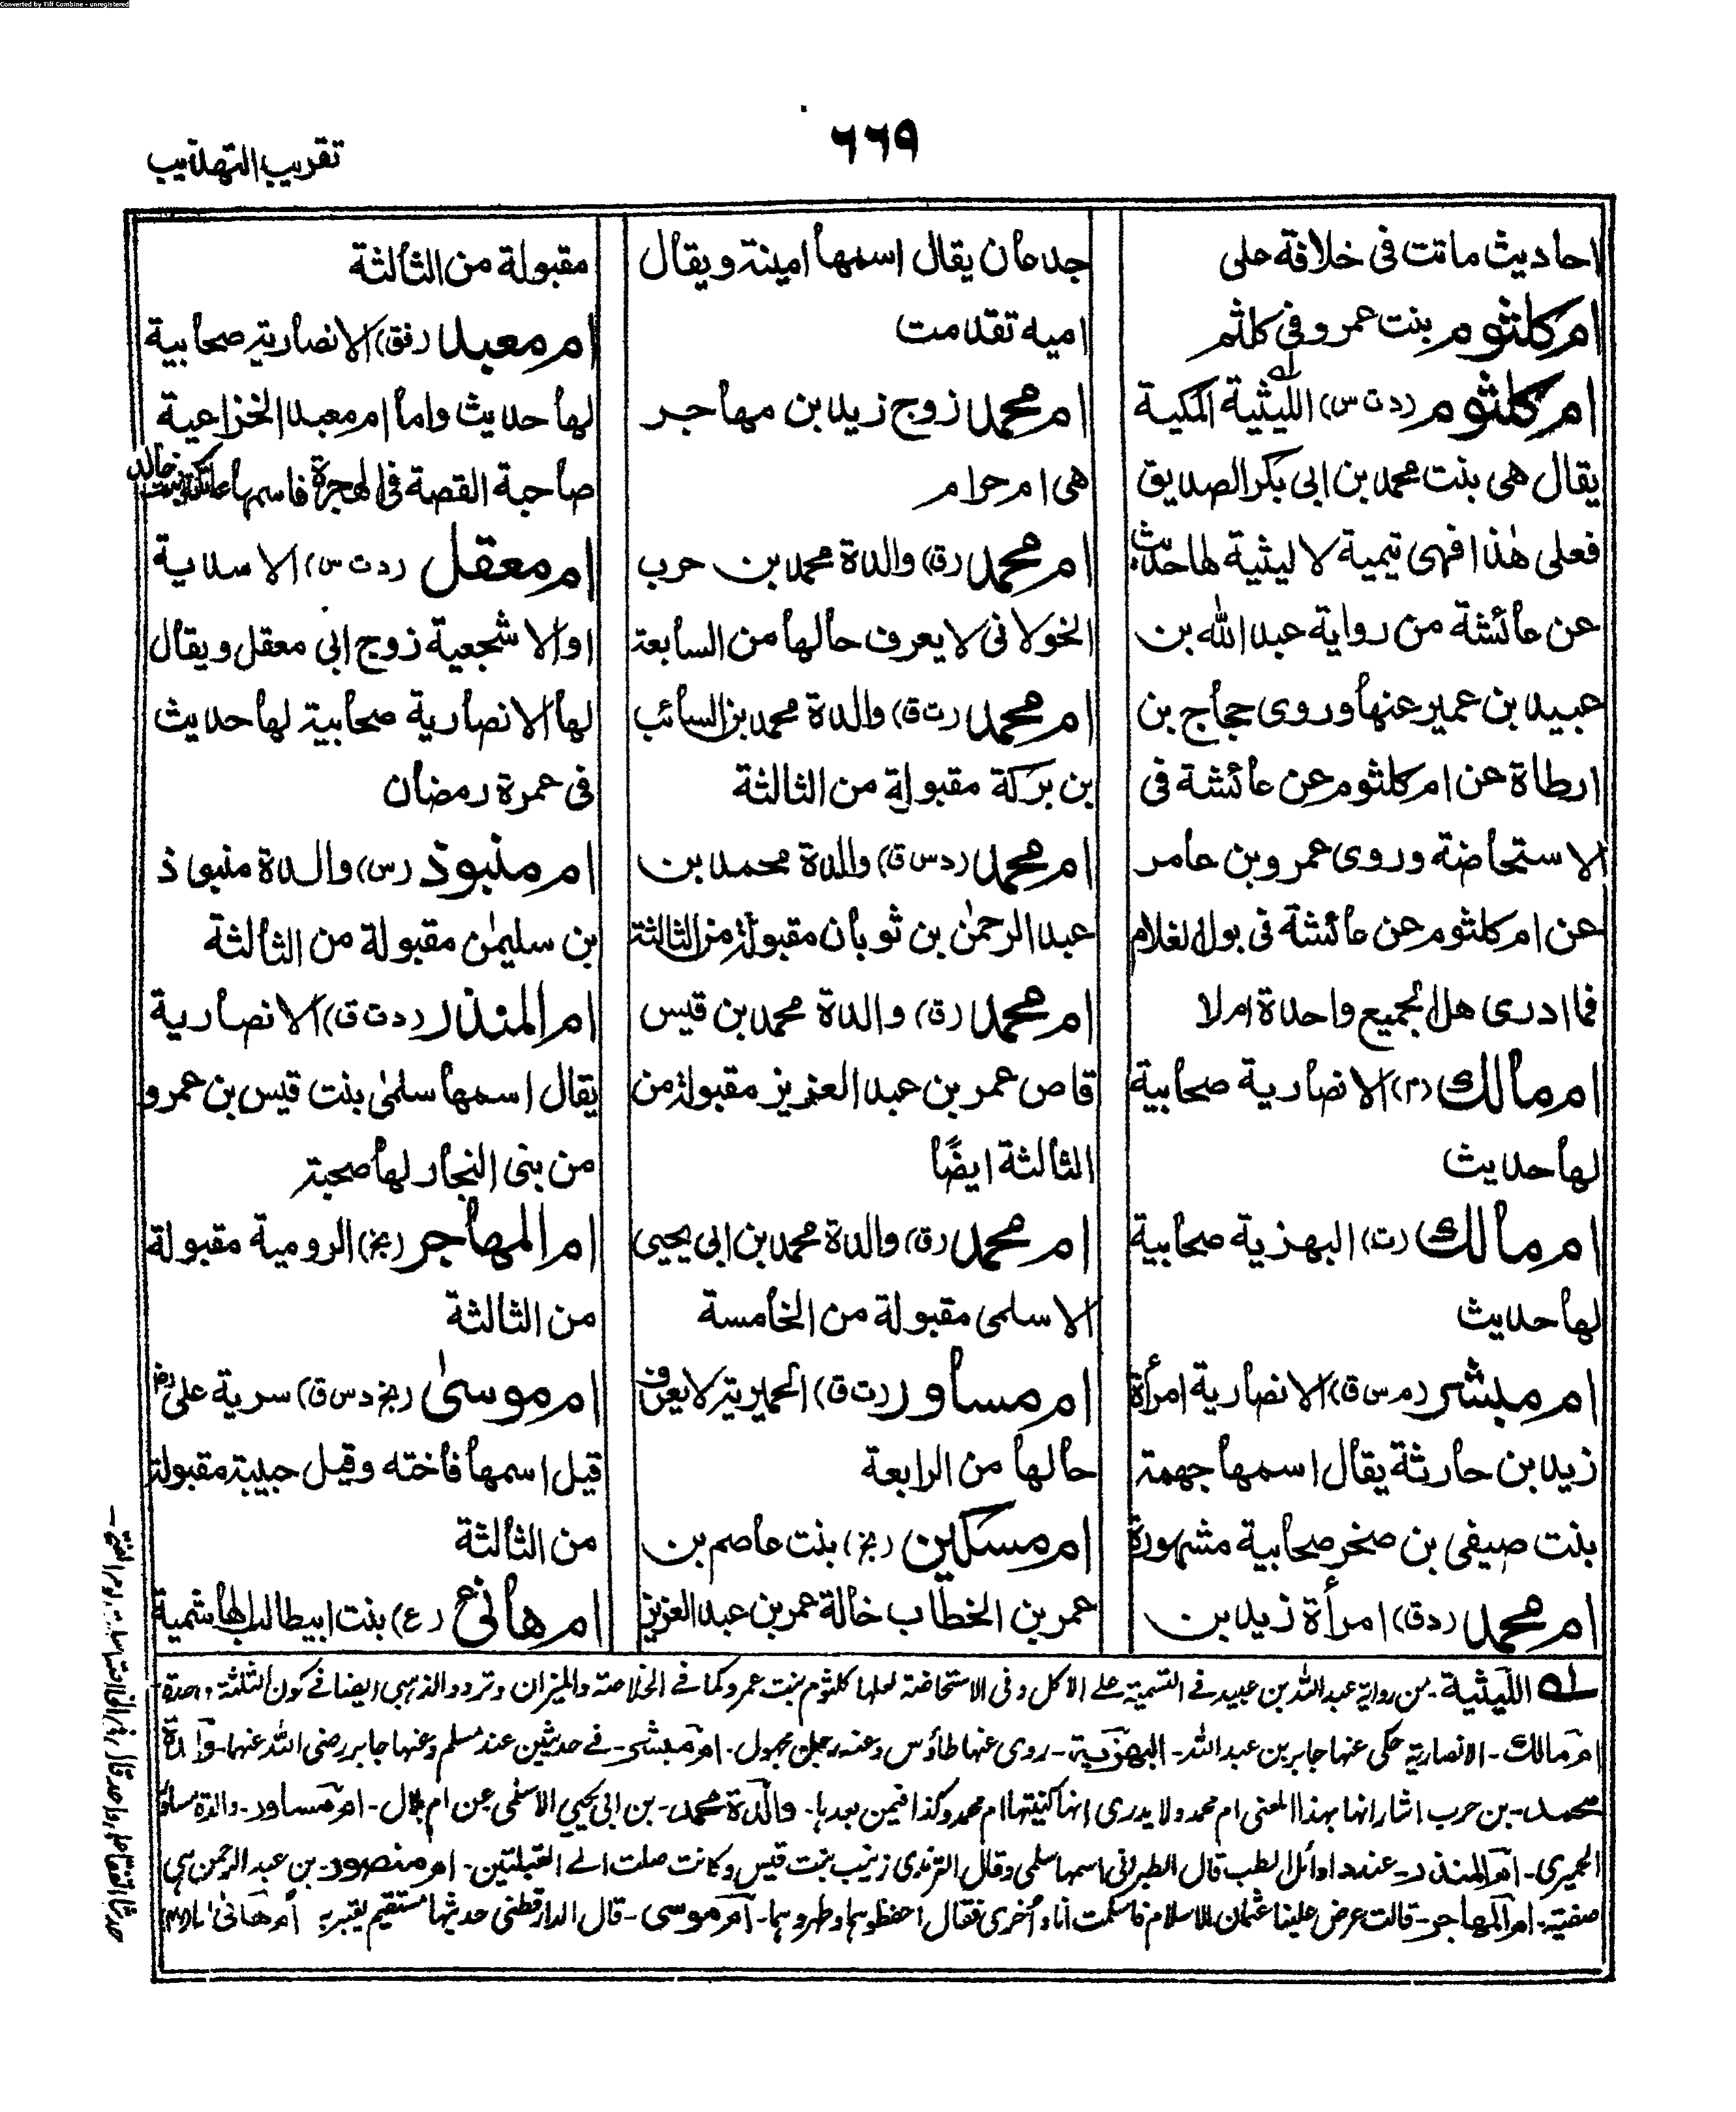 Converted by Tiff Combine - unregistered
٦٦٩
تقريب التهذيب
احاديث ماتت فى خلافة على
ام كلثوم بنت عمرو فى كلثم
ام كلثوم (د ت س) الليثية المكية
يقال هى بنت محمد بن ابى بكر الصديق
فعلى هذا فهى تيمية لا ليثية لها حديث
عن عائشة من رواية عبد الله بن
عبيد بن عمير عنها وروى حجاج بن
ارطاة عن ام كلثوم عن عائشة فى
الاستحاضة وروى عمرو بن عامر
عن ام كلثوم عن عائشة فى بول الغلام
فما ادرى هل الجميع واحدة ام لا
ام مالك (م) الانصارية صحابية
لها حديث
ام مالك (ت) البهزية صحابية
لها حديث
ام مبشر (م س ق) الانصارية امرأة
زيد بن حارثة يقال اسمها جهمة
بنت صيفى بن صخر صحابية مشهورة
ام محمد (د ق) امرأة زيد بن
جدعان يقال اسمها امينة ويقال
اميه تقدمت
ام محمد زوج زيد بن مهاجر
هى ام حرام
ام محمد (ق) والدة محمد بن حرب
الخولانى لا يعرف حالها من السابعة
ام محمد (ت ق) والدة محمد بن السائب
بن بركة مقبولة من الثالثة
ام محمد (د س ق) والدة محمد بن
عبد الرحمٰن بن ثوبان مقبولة من الثالثة
ام محمد (ق) والدة محمد بن قيس
قاص عمر بن عبد العزيز مقبولة من
الثالثة ايضًا
ام محمد (ق) والدة محمد بن ابى يحيى
الاسلمى مقبولة من الخامسة
ام مساور (ت ق) الحميرية لا يعرف
حالها من الرابعة
ام مسكين (بخ) بنت عاصم بن
عمر بن الخطاب خالة عمر بن عبد العزيز
مقبولة من الثالثة
ام معبد (فق) الانصارية صحابية
لها حديث واما ام معبد الخزاعية
صاحبة القصة فى الهجرة فاسمها عاتكة بنت خالد
ام معقل (د ت س) الاسدية
او الاشجعية زوج ابى معقل ويقال
لها الانصارية صحابية لها حديث
فى عمرة رمضان
ام منبوذ (س) والدة منبوذ
بن سليمٰن مقبولة من الثالثة
ام المنذر (د ت ق) الانصارية
يقال اسمها سلمٰى بنت قيس بن عمرو
من بنى النجار لها صحبة
ام المهاجر (بخ) الرومية مقبولة
من الثالثة
ام موسىٰ (بخ د س ق) سرية على رض
قيل اسمها فاخته وقيل حبيبة مقبولة
من الثالثة
ام هانئ (ع) بنت ابيطالب الهاشمية
له الليثية - من رواية عبد الله بن عبيد فے التسمية علے الاكل وفى الاستحاضة لعلها كلثوم بنت عمرو كما فے الخلاصة والميزان وتردد الذهبى ايضا فے كون الثلثة واحدة -
ام مالك - الانصارية حكى عنها جابر بن عبد الله - البهزية - روى عنها طاؤس وعنه رجل مجهول - ام مبشر - فے حديثين عند مسلم وعنها جابر رضى الله عنها - والدة
محمد - بن حرب اشار انها بهذا المعنى ام محمد ولا يدرى انها كنيتها ام محمد وكذا فيمن بعدها - والدة محمد - بن ابى يحيى الاسلمى عن ام بلال - ام مساور - والدة مساور
الحميرى - ام المنذر - عند اوائل لطب قال الطبرانى اسمها سلمى وقال الترمذى زينب بنت قيس وكانت صلت الے القبلتين - ام منصور - بن عبد الرحمن هى
صفية - ام المهاجر - قالت عرض علينا عثمان الاسلام فاسلمت انا واخرى فقال احفظوهما وطهروهما - ام موسى - قال الدارقطنى حديثها مستقيم يعتبر به ام هانئ